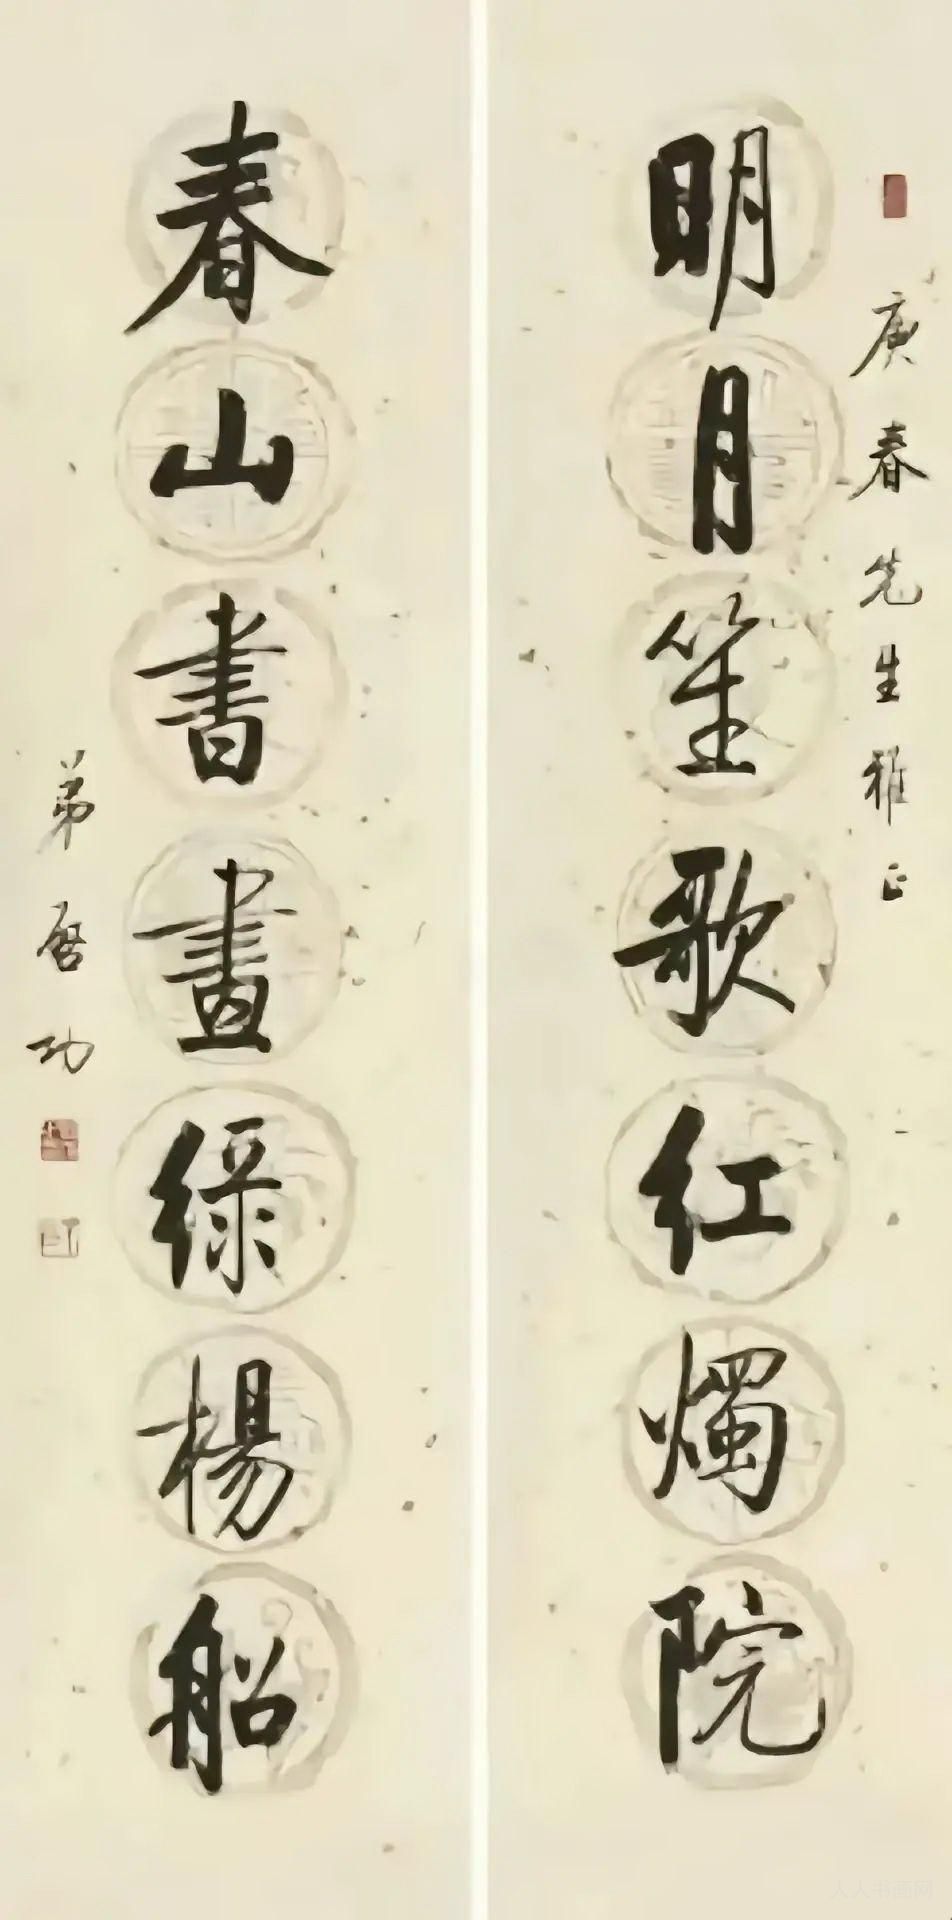 庚春先生雅正
明月笙歌红烛院
春山書畫綠楊船
弟启功
人人书画网